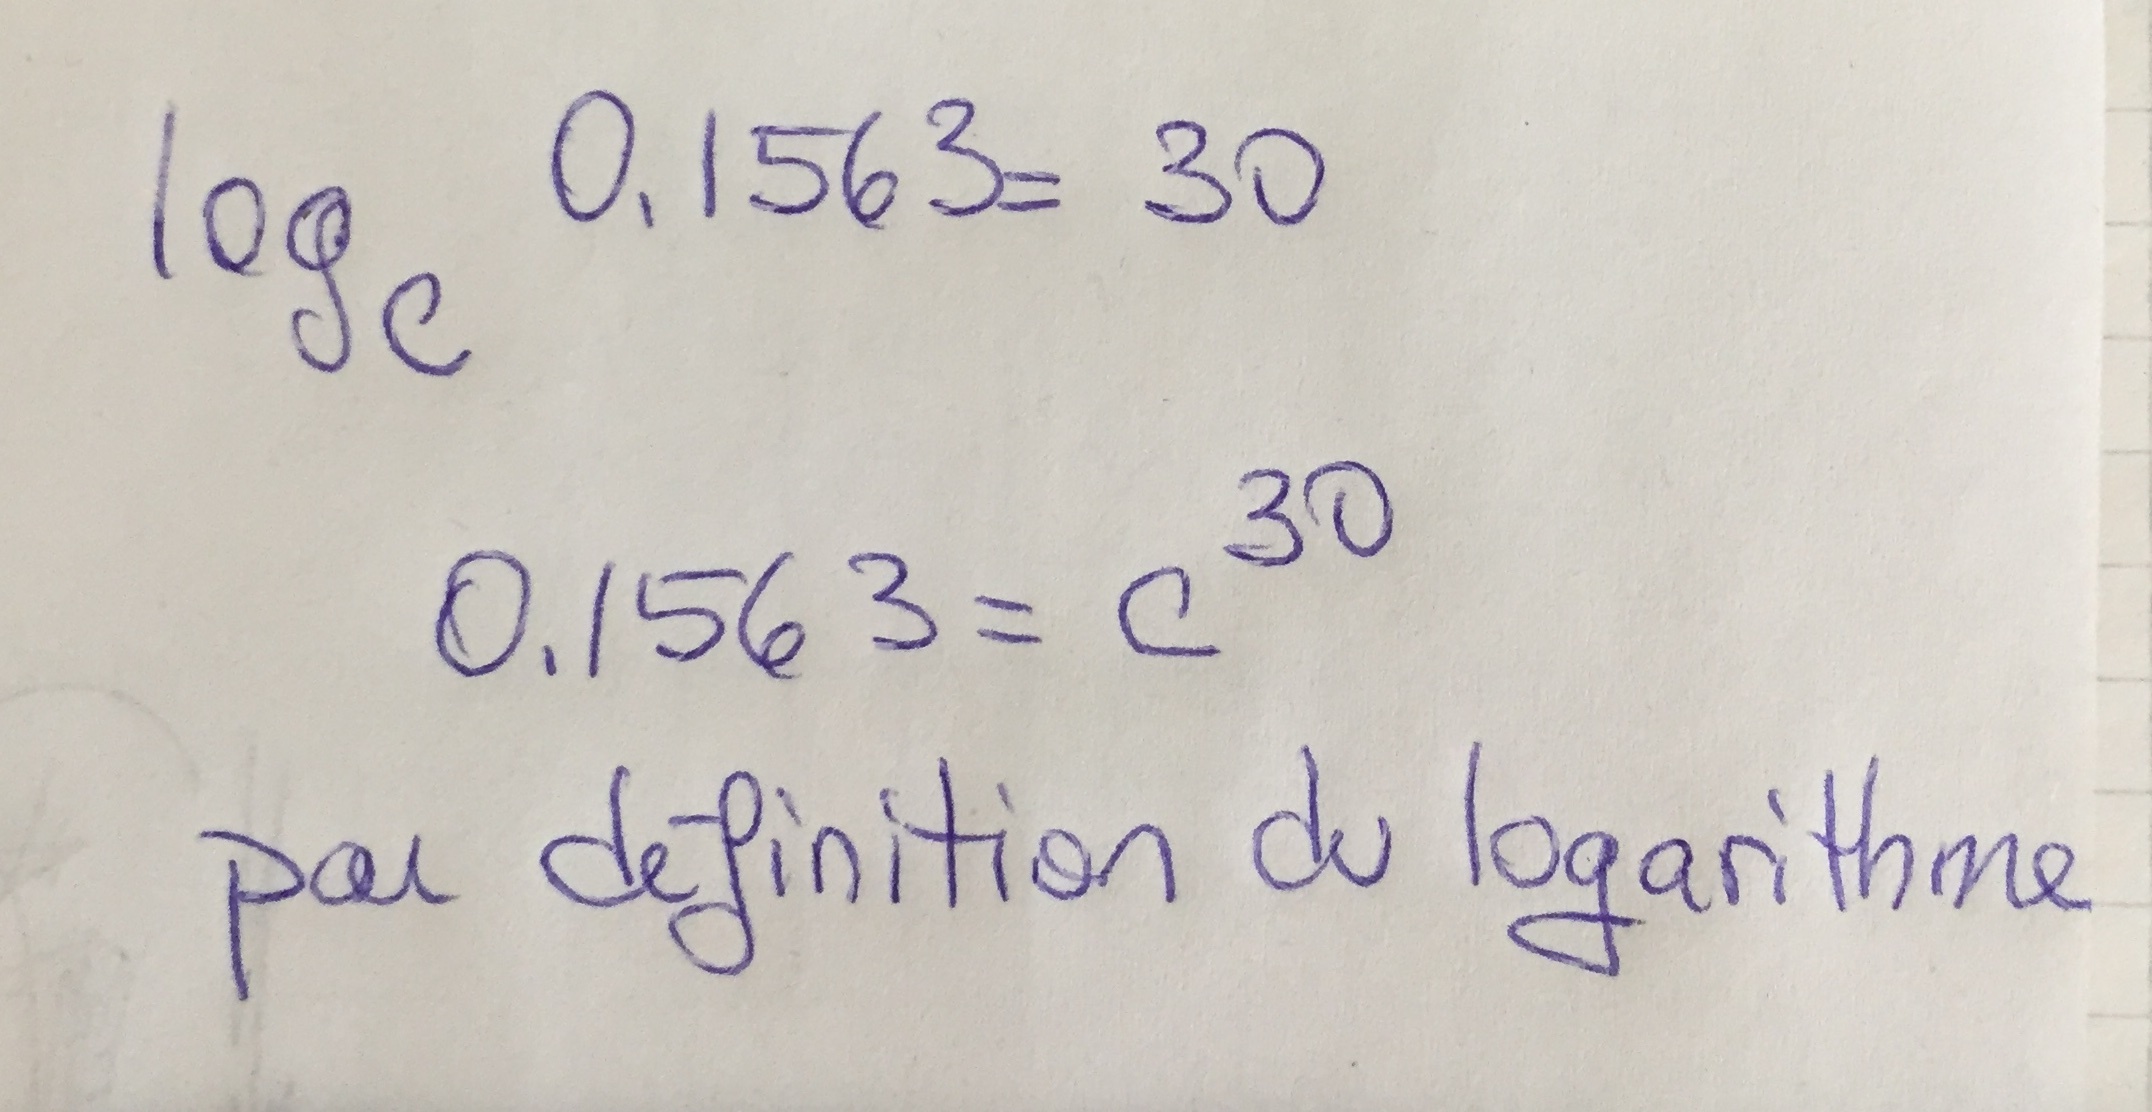 log_c 0.1563 = 30
0.1563 = c^30
par définition du logarithme